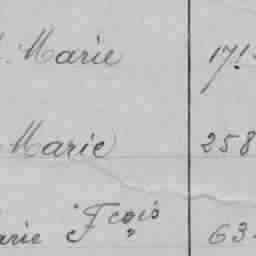 Marie 171
Marie 258
arie Fçois 63